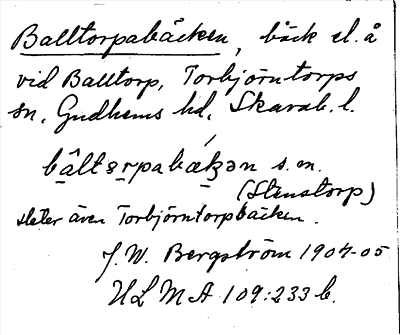 Balltorpabäcken, bäck el. å
vid Balltorp, Torbjörntorps
sn, Gudhems hd, Skarab. l.
bált ərpabäkən s. en.
(Stenstorp)
heter även Torbjörntorpbäcken.
J. W. Bergström 1904-05
ULMA 109:233 b.